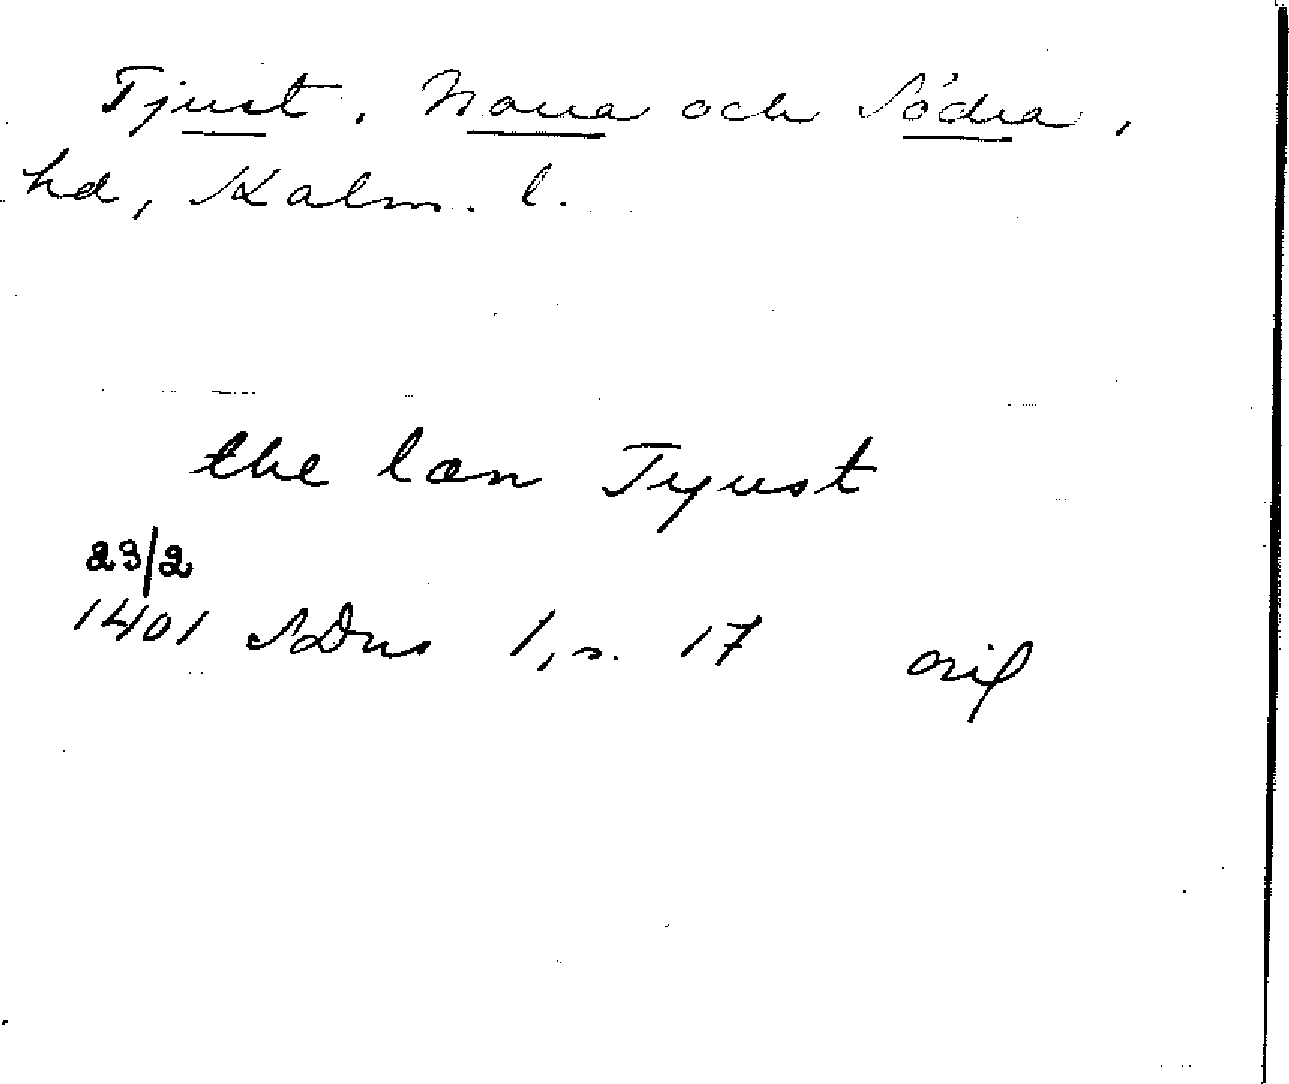 Tjust, Norra och Södra,
hd, Kalm. l.
the læn Tyust
23/2
1401 SDns 1, s. 17 orig